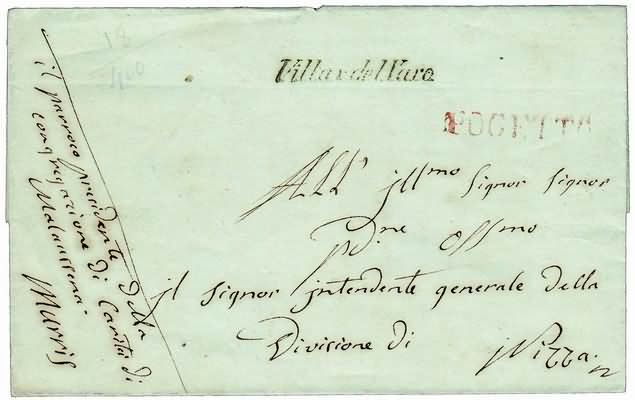 18
400
Villar del Varo
POGETTO
All' Jll.mo Signor Signor
pd.ne Oss.mo
il Signor intendente generale della
Divisione di Nizza
il parroco presidente della
congregazione di Carità di
Malaussena.
Marris